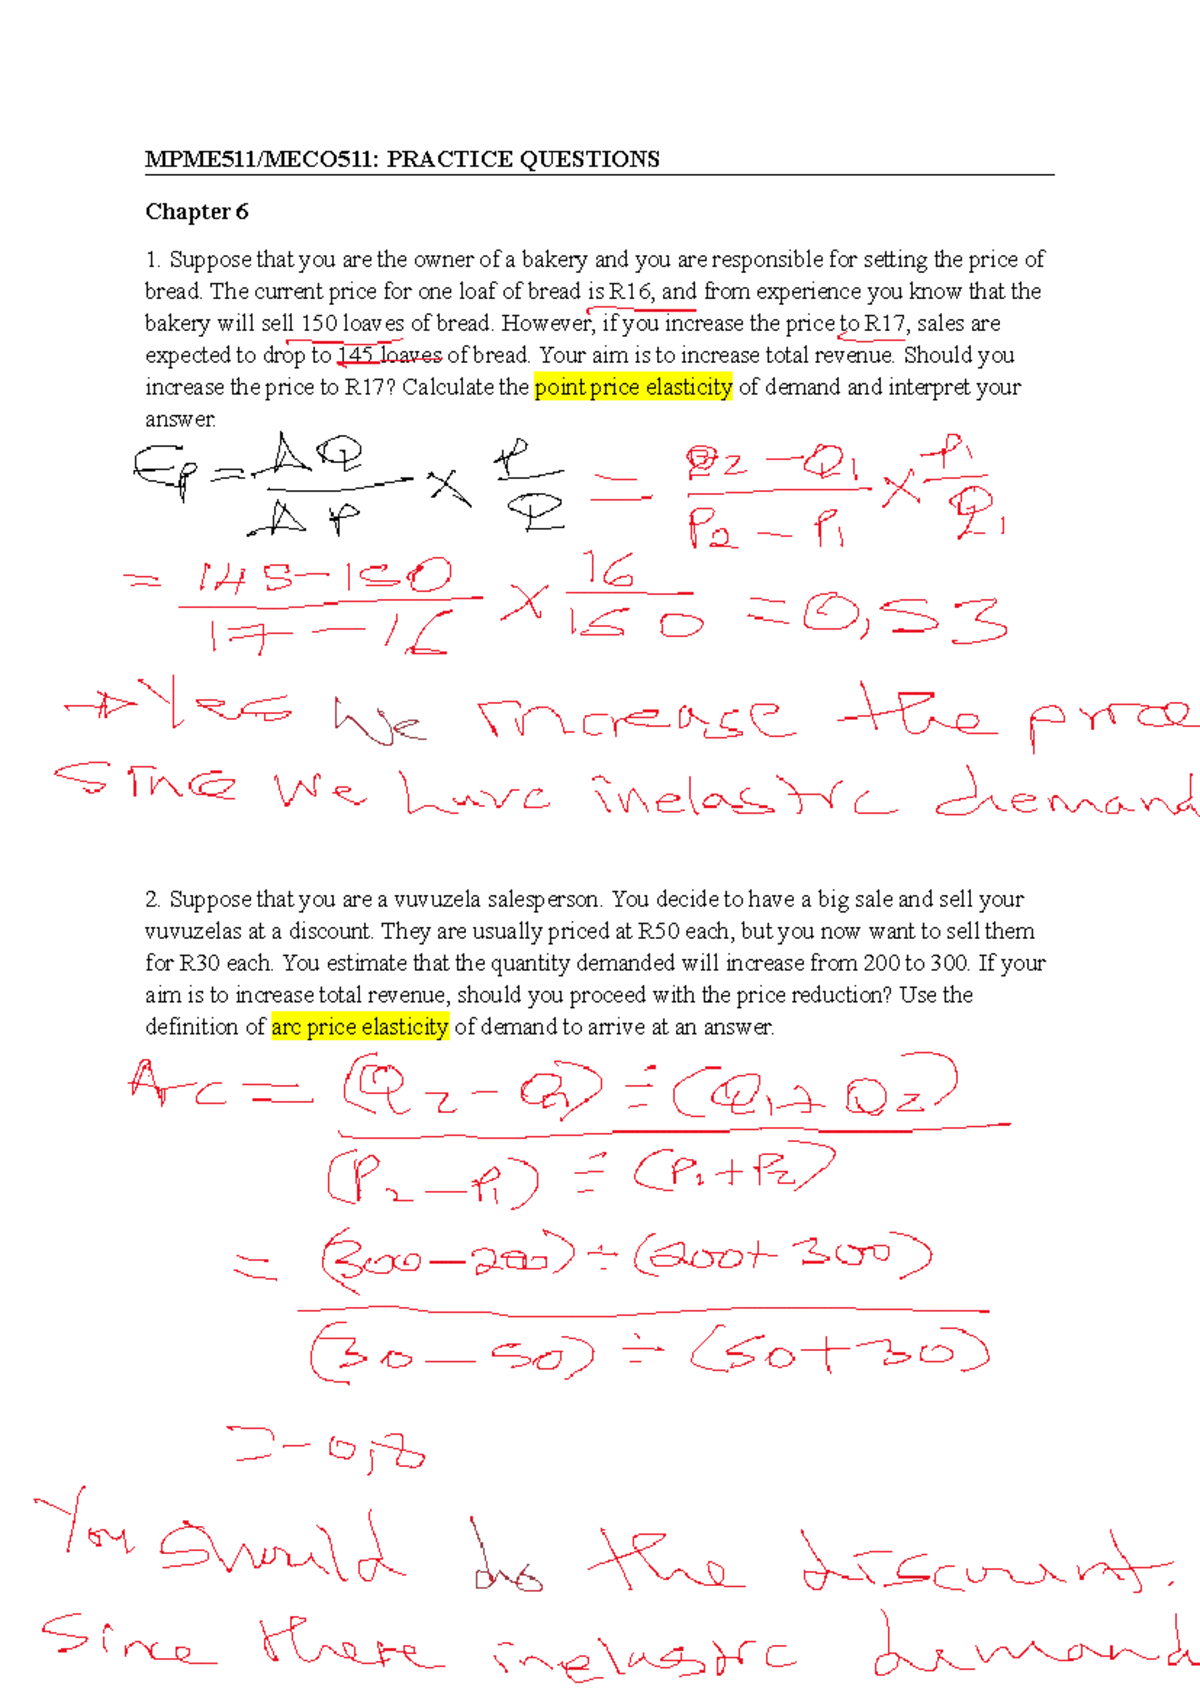 MPME511/MECO511: PRACTICE QUESTIONS
Chapter 6
1. Suppose that you are the owner of a bakery and you are responsible for setting the price of
bread. The current price for one loaf of bread is R16, and from experience you know that the
bakery will sell 150 loaves of bread. However, if you increase the price to R17, sales are
expected to drop to 145 loaves of bread. Your aim is to increase total revenue. Should you
increase the price to R17? Calculate the point price elasticity of demand and interpret your
answer.
Ep = ΔQ/ΔP × P/Q = Q2 - Q1/P2 - P1 × P1/Q1
= 145-150/17-16 × 16/150 = 0,53
→ Yes we increase the price
Since we have inelastic demand
2. Suppose that you are a vuvuzela salesperson. You decide to have a big sale and sell your
vuvuzelas at a discount. They are usually priced at R50 each, but you now want to sell them
for R30 each. You estimate that the quantity demanded will increase from 200 to 300. If your
aim is to increase total revenue, should you proceed with the price reduction? Use the
definition of arc price elasticity of demand to arrive at an answer.
Arc = (Q2 - Q1) ÷ (Q1 + Q2)
(P2 - P1) ÷ (P1 + P2)
= (300-200) ÷ (200+300)
(30-50) ÷ (50+30)
= -0,8
You should do the discount.
Since there inelastic demand